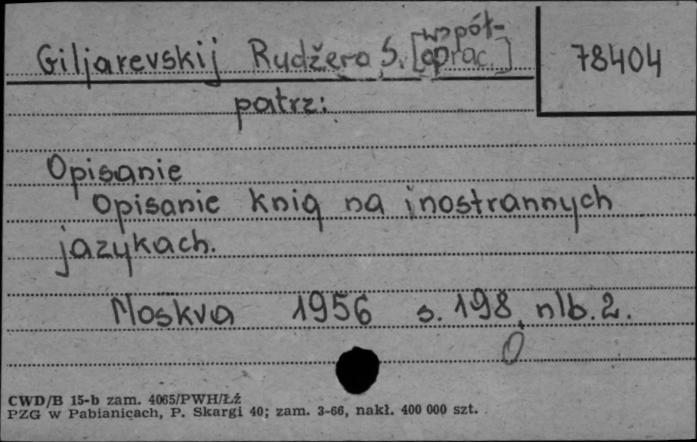 Giljarevskij Rudžero S. [współ-
oprac.]
78404
patrz:
Opisanie
Opisanie knig na inostrannych
jazykach.
Moskva 1956 s. 198, nlb. 2.
CWD/B 15-b zam. 4065/PWH/Łź
PZG w Pabianicach, P. Skargi 40; zam. 3-66, nakł. 400 000 szt.